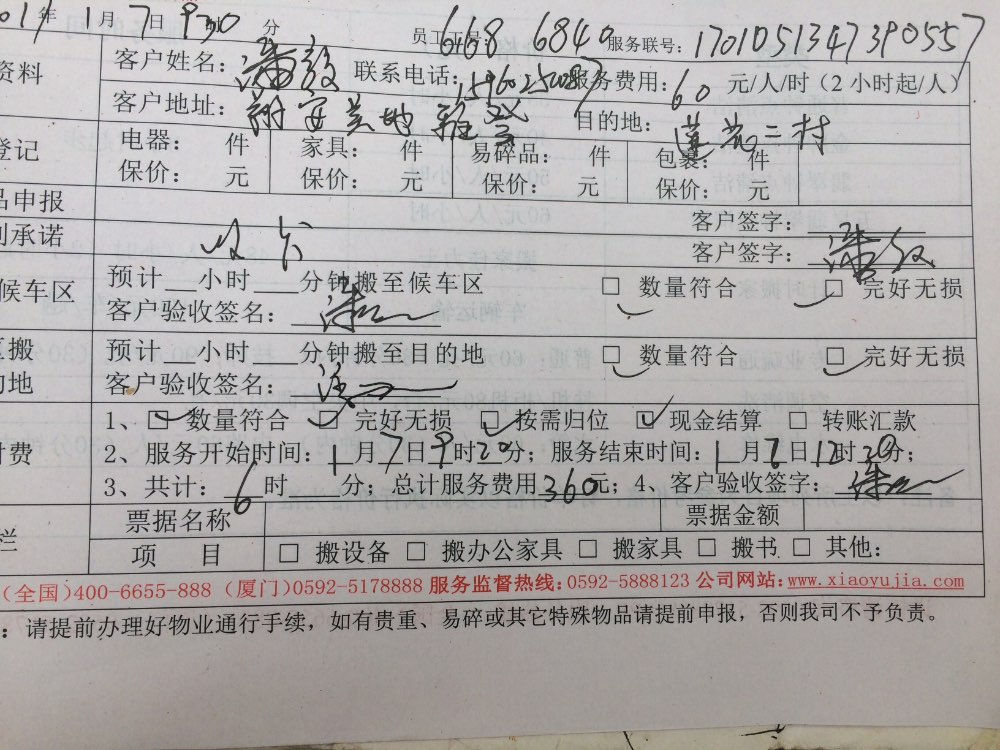 年 1月7日9 30 分 员工工号: 668 6840 服务联号: 1701051347390557
资料 客户姓名: 联系电话: 服务费用: 60 元/人/时(2小时起/人)
客户地址: 翔安 目的地: 莲花二村
登记 电器: 件 家具: 件 易碎品: 件 包裹: 件
保价: 元 保价: 元 保价: 元 保价: 元
品申报 客户签字:
别承诺 客户签字:
候车区 预计 小时 分钟搬至候车区 □ 数量符合 □ 完好无损
客户验收签名:
预计 小时 分钟搬至目的地 □ 数量符合 □ 完好无损
的地 客户验收签名:
1、☑ 数量符合 ☑ 完好无损 ☑ 按需归位 ☑ 现金结算 □ 转账汇款
付费 2、服务开始时间: 1月7日9时20分; 服务结束时间: 1月7日12时20分;
3、共计: 6时 分; 总计服务费用360元; 4、客户验收签字:
票据名称 票据金额
栏 项 目 □ 搬设备 □ 搬办公家具 □ 搬家具 □ 搬书 □ 其他:
(全国)400-6655-888 (厦门)0592-5178888 服务监督热线:0592-5888123 公司网站:www.xiaoyujia.com
: 请提前办理好物业通行手续,如有贵重、易碎或其它特殊物品请提前申报,否则我司不予负责。